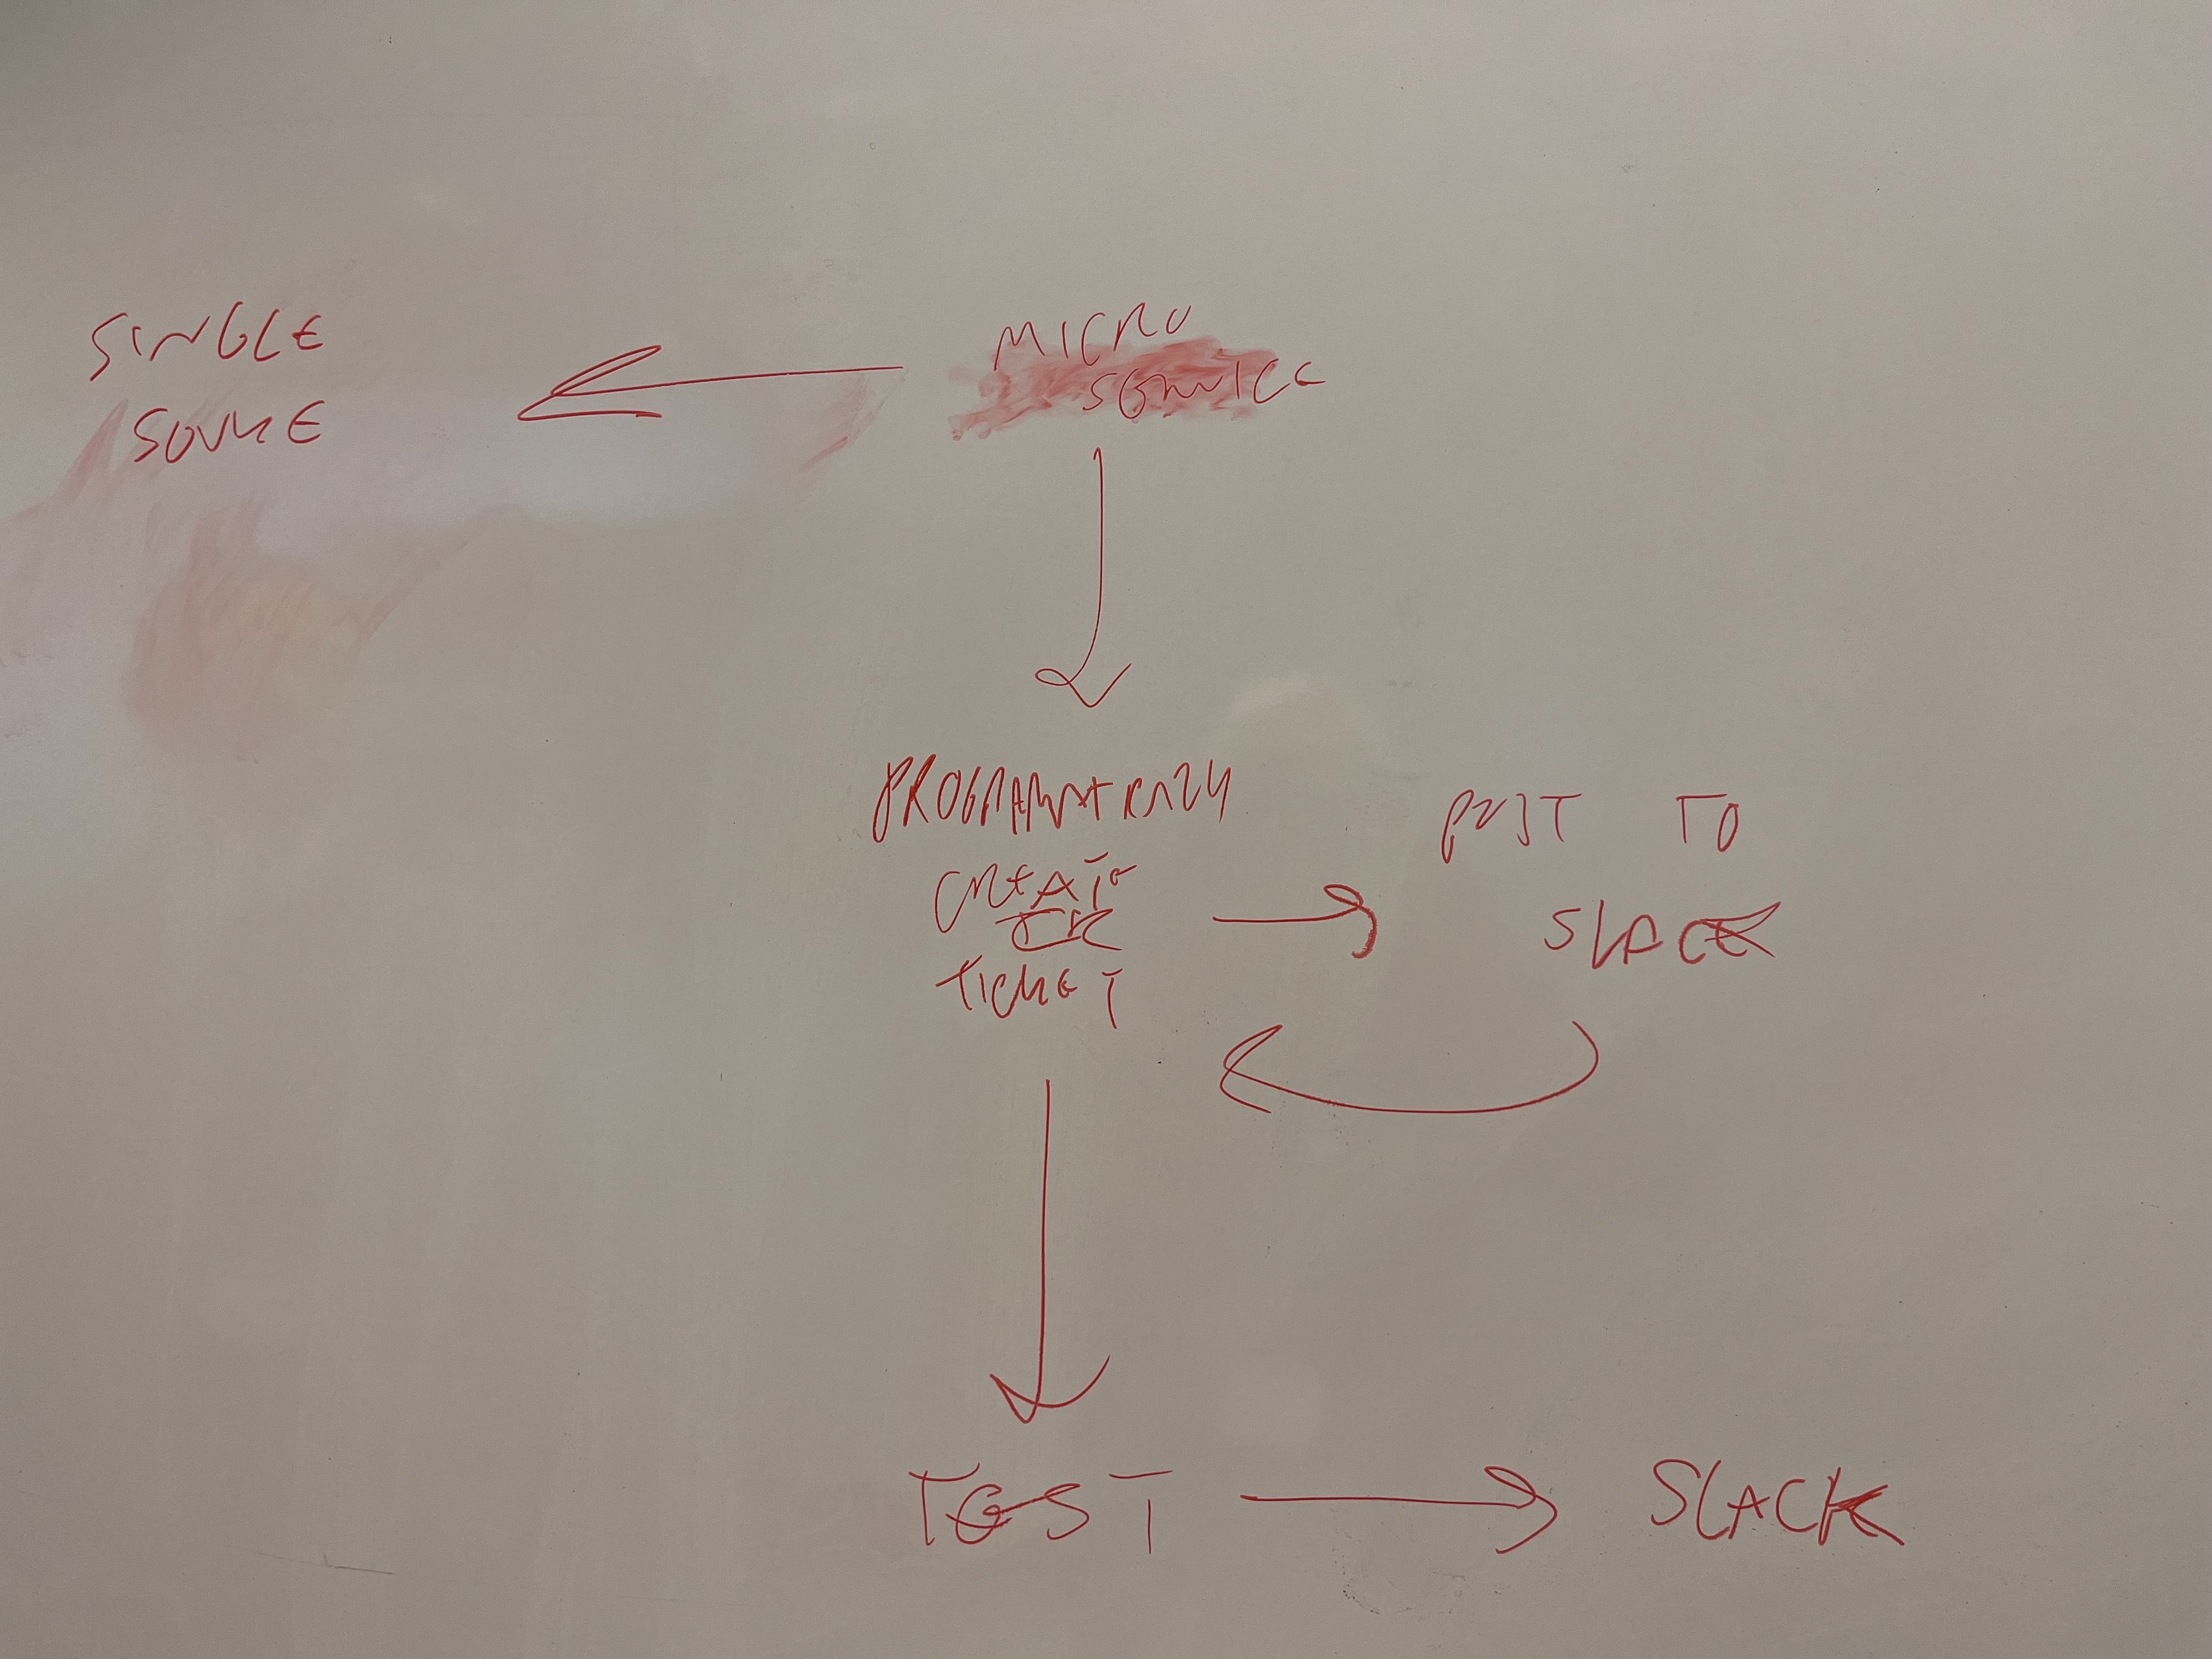 SINGLE
SOURCE
MICRO
SERVICE
PROGRAMATICALLY
CREATE
TICKET
POST TO
SLACK
TEST
SLACK